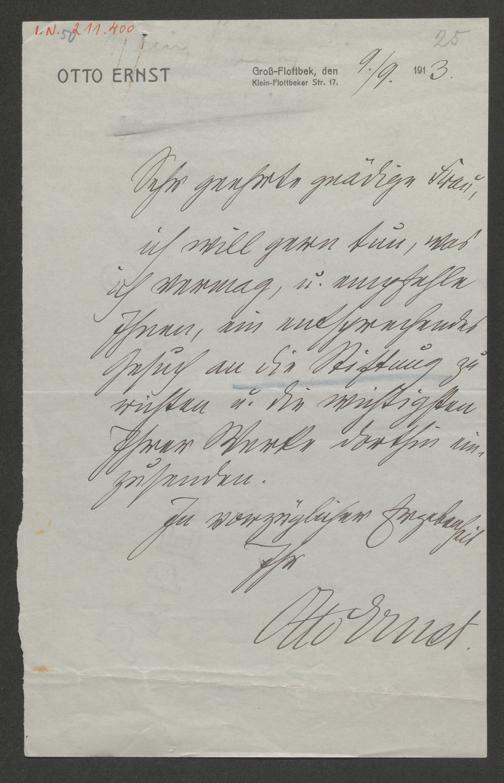 I.N. 211.400
50
25
OTTO ERNST
Groß-Flottbek, den 9./9. 1913.
Klein-Flottbeker Str. 17.
Sehr geehrte gnädige Frau,
ich will gern tun, was
ich vermag, u. empfehle
Ihnen, ein entsprechendes
Gesuch an die Stiftung zu
richten u. die wichtigsten
Ihrer Werke dorthin ein-
zusenden.
In vorzüglicher Ergebenheit
Ihr
Otto Ernst.